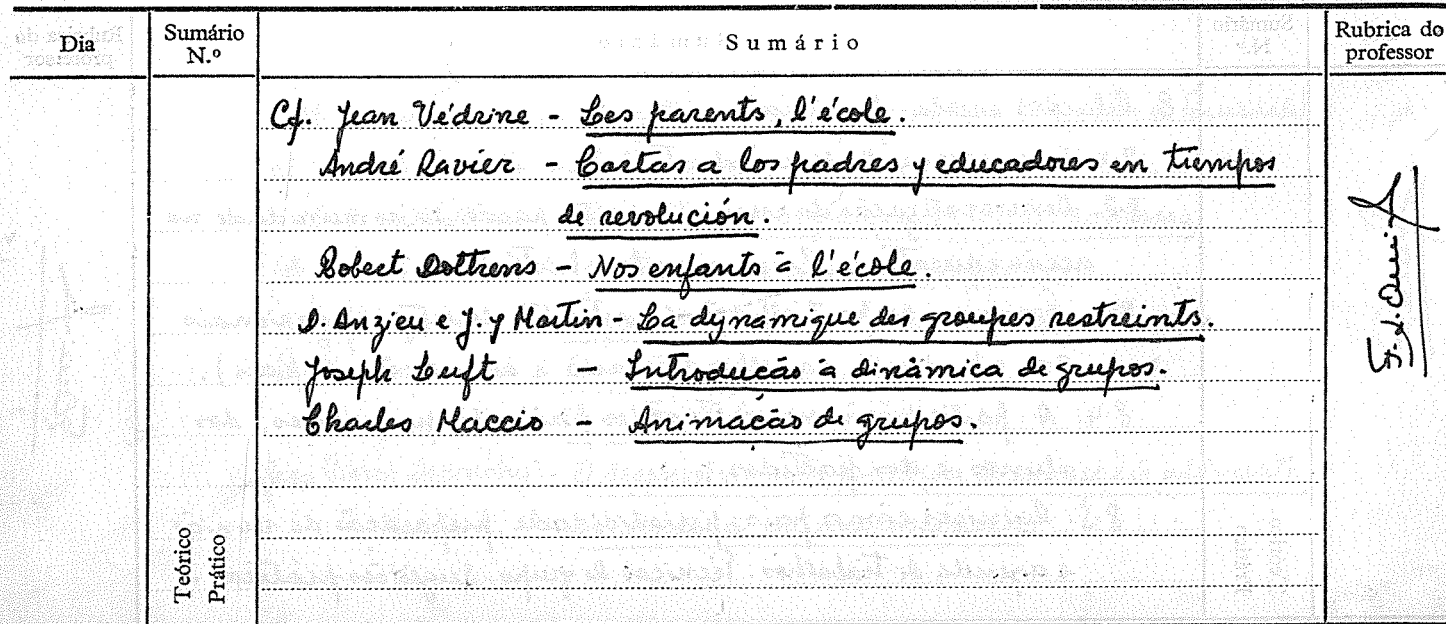 Dia
Sumário N.º
Sumário
Rubrica do professor
Cf. Jean Védrine - Les parents, l'école.
André Ravier - Cartas a los padres y educadores en tiempos
de revolución.
Robert Dottrens - Nos enfants à l'école.
D. Anzieu e J. y Martin - La dynamique des groupes restreints.
Joseph Luft - Introdução à dinâmica de grupos.
Charles Maccio - Animação de grupos.
Teórico
Prático